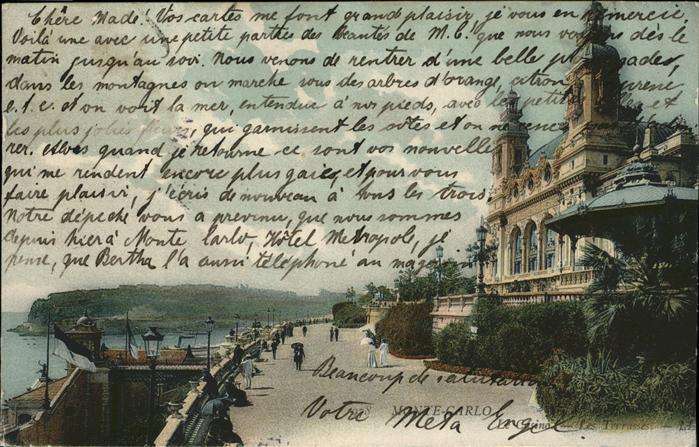 Chère Made! Vos cartes me font grand plaisir, je vous en remercie,
Voilà une avec une petite partie des beautés de M. C. que nous voyons dès le
matin jusqu'au soir. Nous venons de rentrer d'une belle promenades,
dans les montagnes on marche sous des arbres d'orange, citron
e.t.c. et on voit la mer, entendue à nos pieds, avec les petits et
les plus jolies fleurs, qui garnissent les côtes et on ne
rer. Alors quand je retourne ce sont vos nouvelles
qui me rindent encore plus gaie, et pour vous
faire plaisir, j'ecris de nouveau à vous les trois.
Notre dépeche vous a prevenu, que nous sommes
depuis hier à Monte Carlo, Hôtel Metropole, je
pense, que Bertha l'a aussi téléphoné au
Beaucoup de salutations
Votre Meta
MONTE-CARLO
Le Casino Les Terrasses